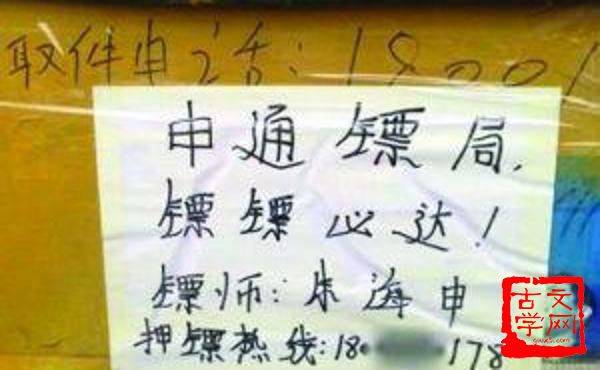 取件电话:18001
申通镖局,
镖镖必达!
镖师:朱海申
押镖热线:18 178
古文学网